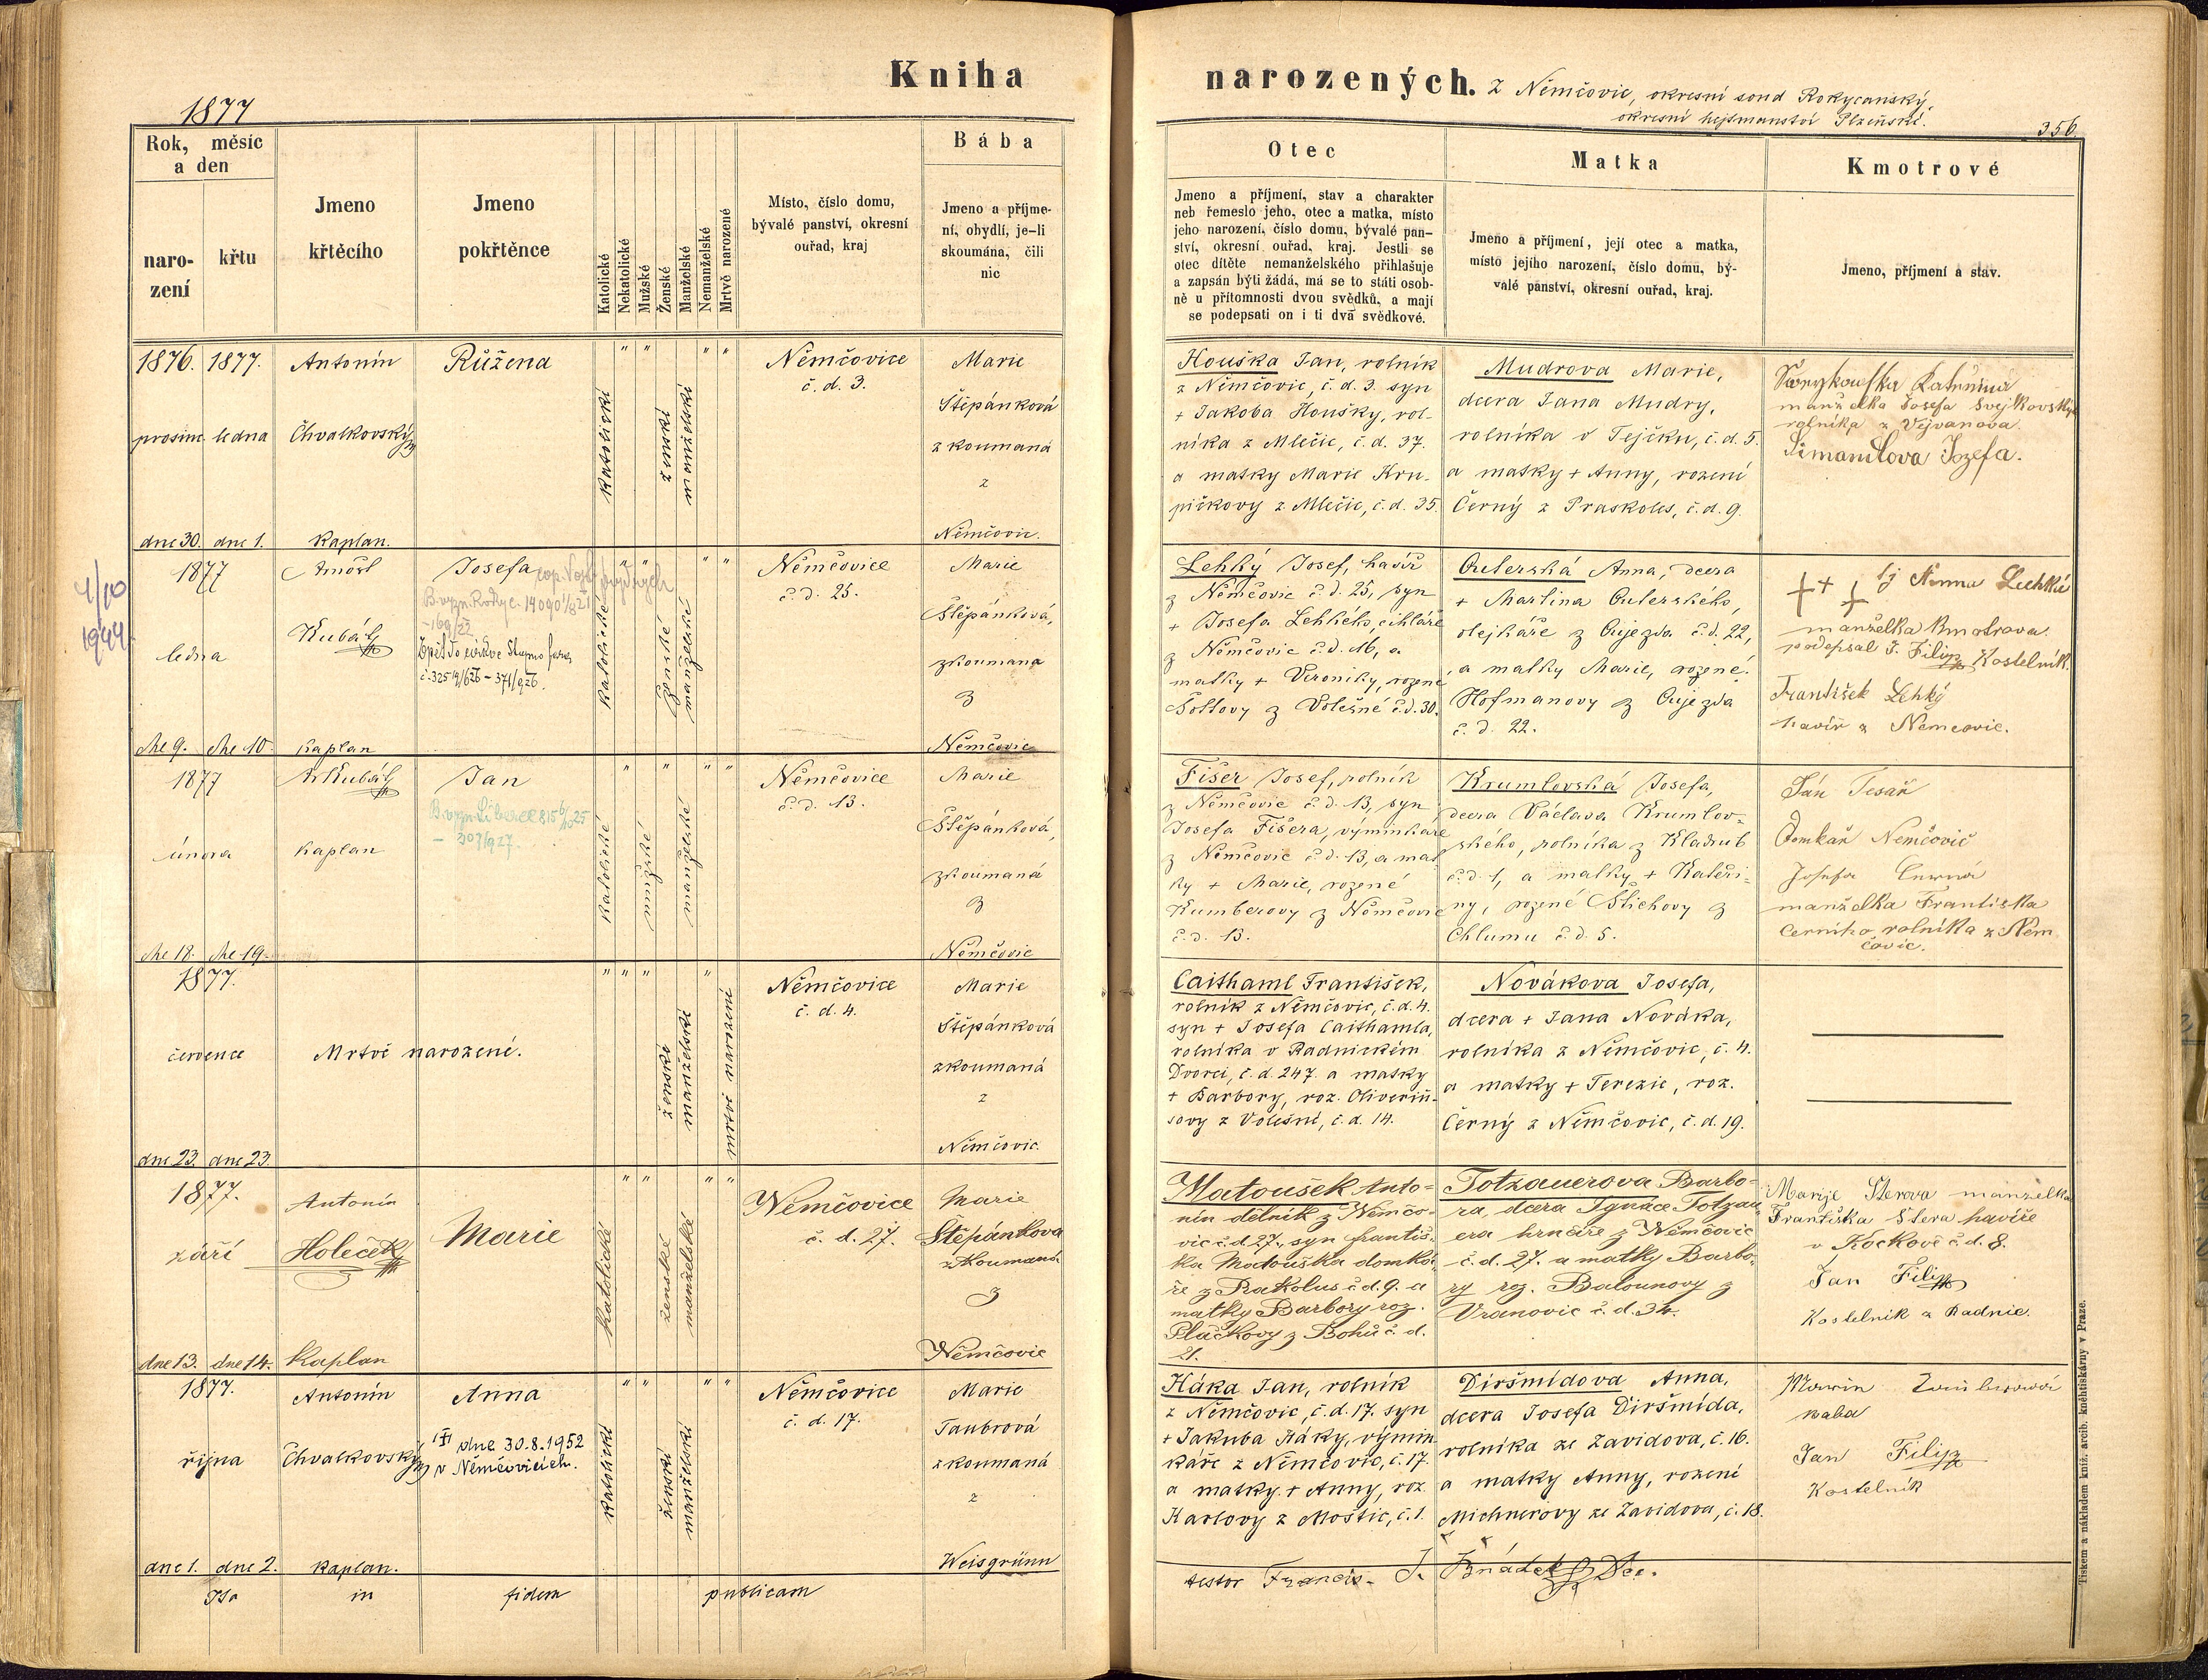 Kniha
narozených. z Němčovic, okresní soud Rokycanský,
okresní hejtmanství Plzeňské.
1877
356.
Rok, měsíc
a den
naro-
zení
křtu
Jmeno
křtěcího
Jmeno
pokřtěnce
Katolické
Nekatolické
Mužské
Ženské
Manželské
Nemanželské
Mrtvě narozené
Místo, číslo domu,
bývalé panství, okresní
ouřad, kraj
Bába
Jmeno a příjme-
ní, obydlí, je-li
skoumána, čili
nic
Otec
Jmeno a příjmení, stav a charakter
neb řemeslo jeho, otec a matka, místo
jeho narození, číslo domu, bývalé pan-
ství, okresní ouřad, kraj. Jestli se
otec dítěte nemanželského přihlašuje
a zapsán býti žádá, má se to státi osob-
ně u přítomnosti dvou svědků, a mají
se podepsati on i ti dva svědkové.
Matka
Jmeno a příjmení, její otec a matka,
místo jejího narození, číslo domu, bý-
valé panství, okresní ouřad, kraj.
Kmotrové
Jmeno, příjmení a stav.
1876. 1877.
prosin. ledna
dne 30. dne 1.
Antonín
Chvalkovský
kaplan.
Růžena
katolické
ženské
manželské
Němčovice
č. d. 3.
Marie
Štěpánková
zkoumaná
z
Němčovic.
Houška Jan, rolník
z Němčovic, č. d. 3. syn
+ Jakoba Houšky, rol-
níka z Mlečic, č. d. 37.
a matky Marie Kru-
pičkovy z Mlečic, č. d. 35.
Mudrova Marie,
dcera Jana Mudry,
rolníka v Tejčku, č. d. 5.
a matky + Anny, rození
Černý z Praskoles, č. d. 9.
Kateřina
manželka Josefa Švejkovský
rolníka z Vejvanova.
Josefa.
4/10
1944
1877
ledna
dne 9. dne 10.
Arnošt
Kubát
kaplan
Josefa
Zpět do církve
č. 32514/626 - 371/926.
katolické
ženské
manželské
Němčovice
č. d. 25.
Marie
Štěpánková,
zkoumaná
z
Němčovic
Lehký Josef, havíř
z Němčovic č. d. 25, syn
+ Josefa Lehkého, cihláře
z Němčovic č. d. 16, a
matky + Veroniky, rozené
Šoltovy z Volešné č. d. 30.
Outerská Anna, dcera
+ Martina Outerského,
olejkáře z Oujezda č. d. 22,
a matky Marie, rozené
Hofmanovy z Oujezda
č. d. 22.
+++ tj Anna Lehká
manželka kmotrova.
podepsal J. Filip Kostelník.
František Lehký
havíř z Němčovic.
1877
února
dne 18. dne 19.
Ar Kubát
kaplan
Jan
katolické
mužské
manželské
Němčovice
č. d. 13.
Marie
Štěpánková,
zkoumaná
z
Němčovic
Fišer Josef, rolník
z Němčovic č. d. 13, syn
Josefa Fišera, výminkáře
z Němčovic č. d. 13, a mat
ky + Marie, rozené
Kumberovy z Němčovic
č. d. 13.
Krumlovská Josefa,
dcera Václava Krumlov-
ského, rolníka z Kladrub
č. d. 1, a matky + Kateři-
ny, rozené Štichovy z
Chlumu č. d. 5.
Ján Tesař
Domkař Nemčovič
Josefa Černá
manželka Františka
Černiho rolníka z Něm
čovic.
1877.
července
dne 23. dne 23.
Mrtvě narozené.
ženské
manželské
mrtvě narození
Němčovice
č. d. 4.
Marie
Štěpánková
zkoumaná
z
Němčovic.
Caithaml František,
rolník z Němčovic, č. d. 4.
syn + Josefa Caithamla,
rolníka v Radnickém
Dvorci, č. d. 247. a matky
+ Barbory, roz. Oliveriu-
sovy z Volešné, č. d. 14.
Novákova Josefa,
dcera + Jana Nováka,
rolníka z Němčovic, č. 4.
a matky + Terezie, roz.
Černý z Němčovic, č. d. 19.
1877.
září
dne 13. dne 14.
Antonín
Holeček
Kaplan
Marie
katolické
ženské
manželské
Němčovice
č. d. 27.
Marie
Štěpánkova
zkoumaná
z
Němčovic
Matoušek Anto-
nín dělník z Němčo-
vic č. d. 27., syn Františ-
ka Matouška domká-
ře z Rakolus č. d. 9. a
matky Barbory roz.
Pláčkovy z Bohů č. d.
21.
Totzauerova Barbo-
ra, dcera Ignáce Totzau-
era hrnčíře z Němčovic
č. d. 27. a matky Barbo-
ry roz. Balounovy z
Vranovic č. d. 34.
Marije Šterova manželka
Františka Štera havíře
v Kockově č. d. 8.
Jan Filip
Kostelník z Radnic.
1877.
října
dne 1. dne 2.
Antonín
Chvalkovský
kaplan.
Anna
dne 30.8.1952
v Němčovicích.
katolické
ženské
manželské
Němčovice
č. d. 17.
Marie
Taubrová
zkoumaná
z
Weisgrünn
Háka Jan, rolník
z Němčovic, č. d. 17. syn
+ Jakuba Háky, výmin-
káře z Němčovic, č. 17.
a matky + Anny, roz.
Karlovy z Moštic, č. 1.
Diršmídova Anna,
dcera Josefa Diršmída,
rolníka ze Zavidova, č. 16.
a matky Anny, rození
Michnerovy ze Zavidova, č. 18.
baba
Jan Filip
Kostelník
Ita in fidem publicam
testor Francis.
Tiskem a nákladem kníž. arcib. kněhtiskárny v Praze.